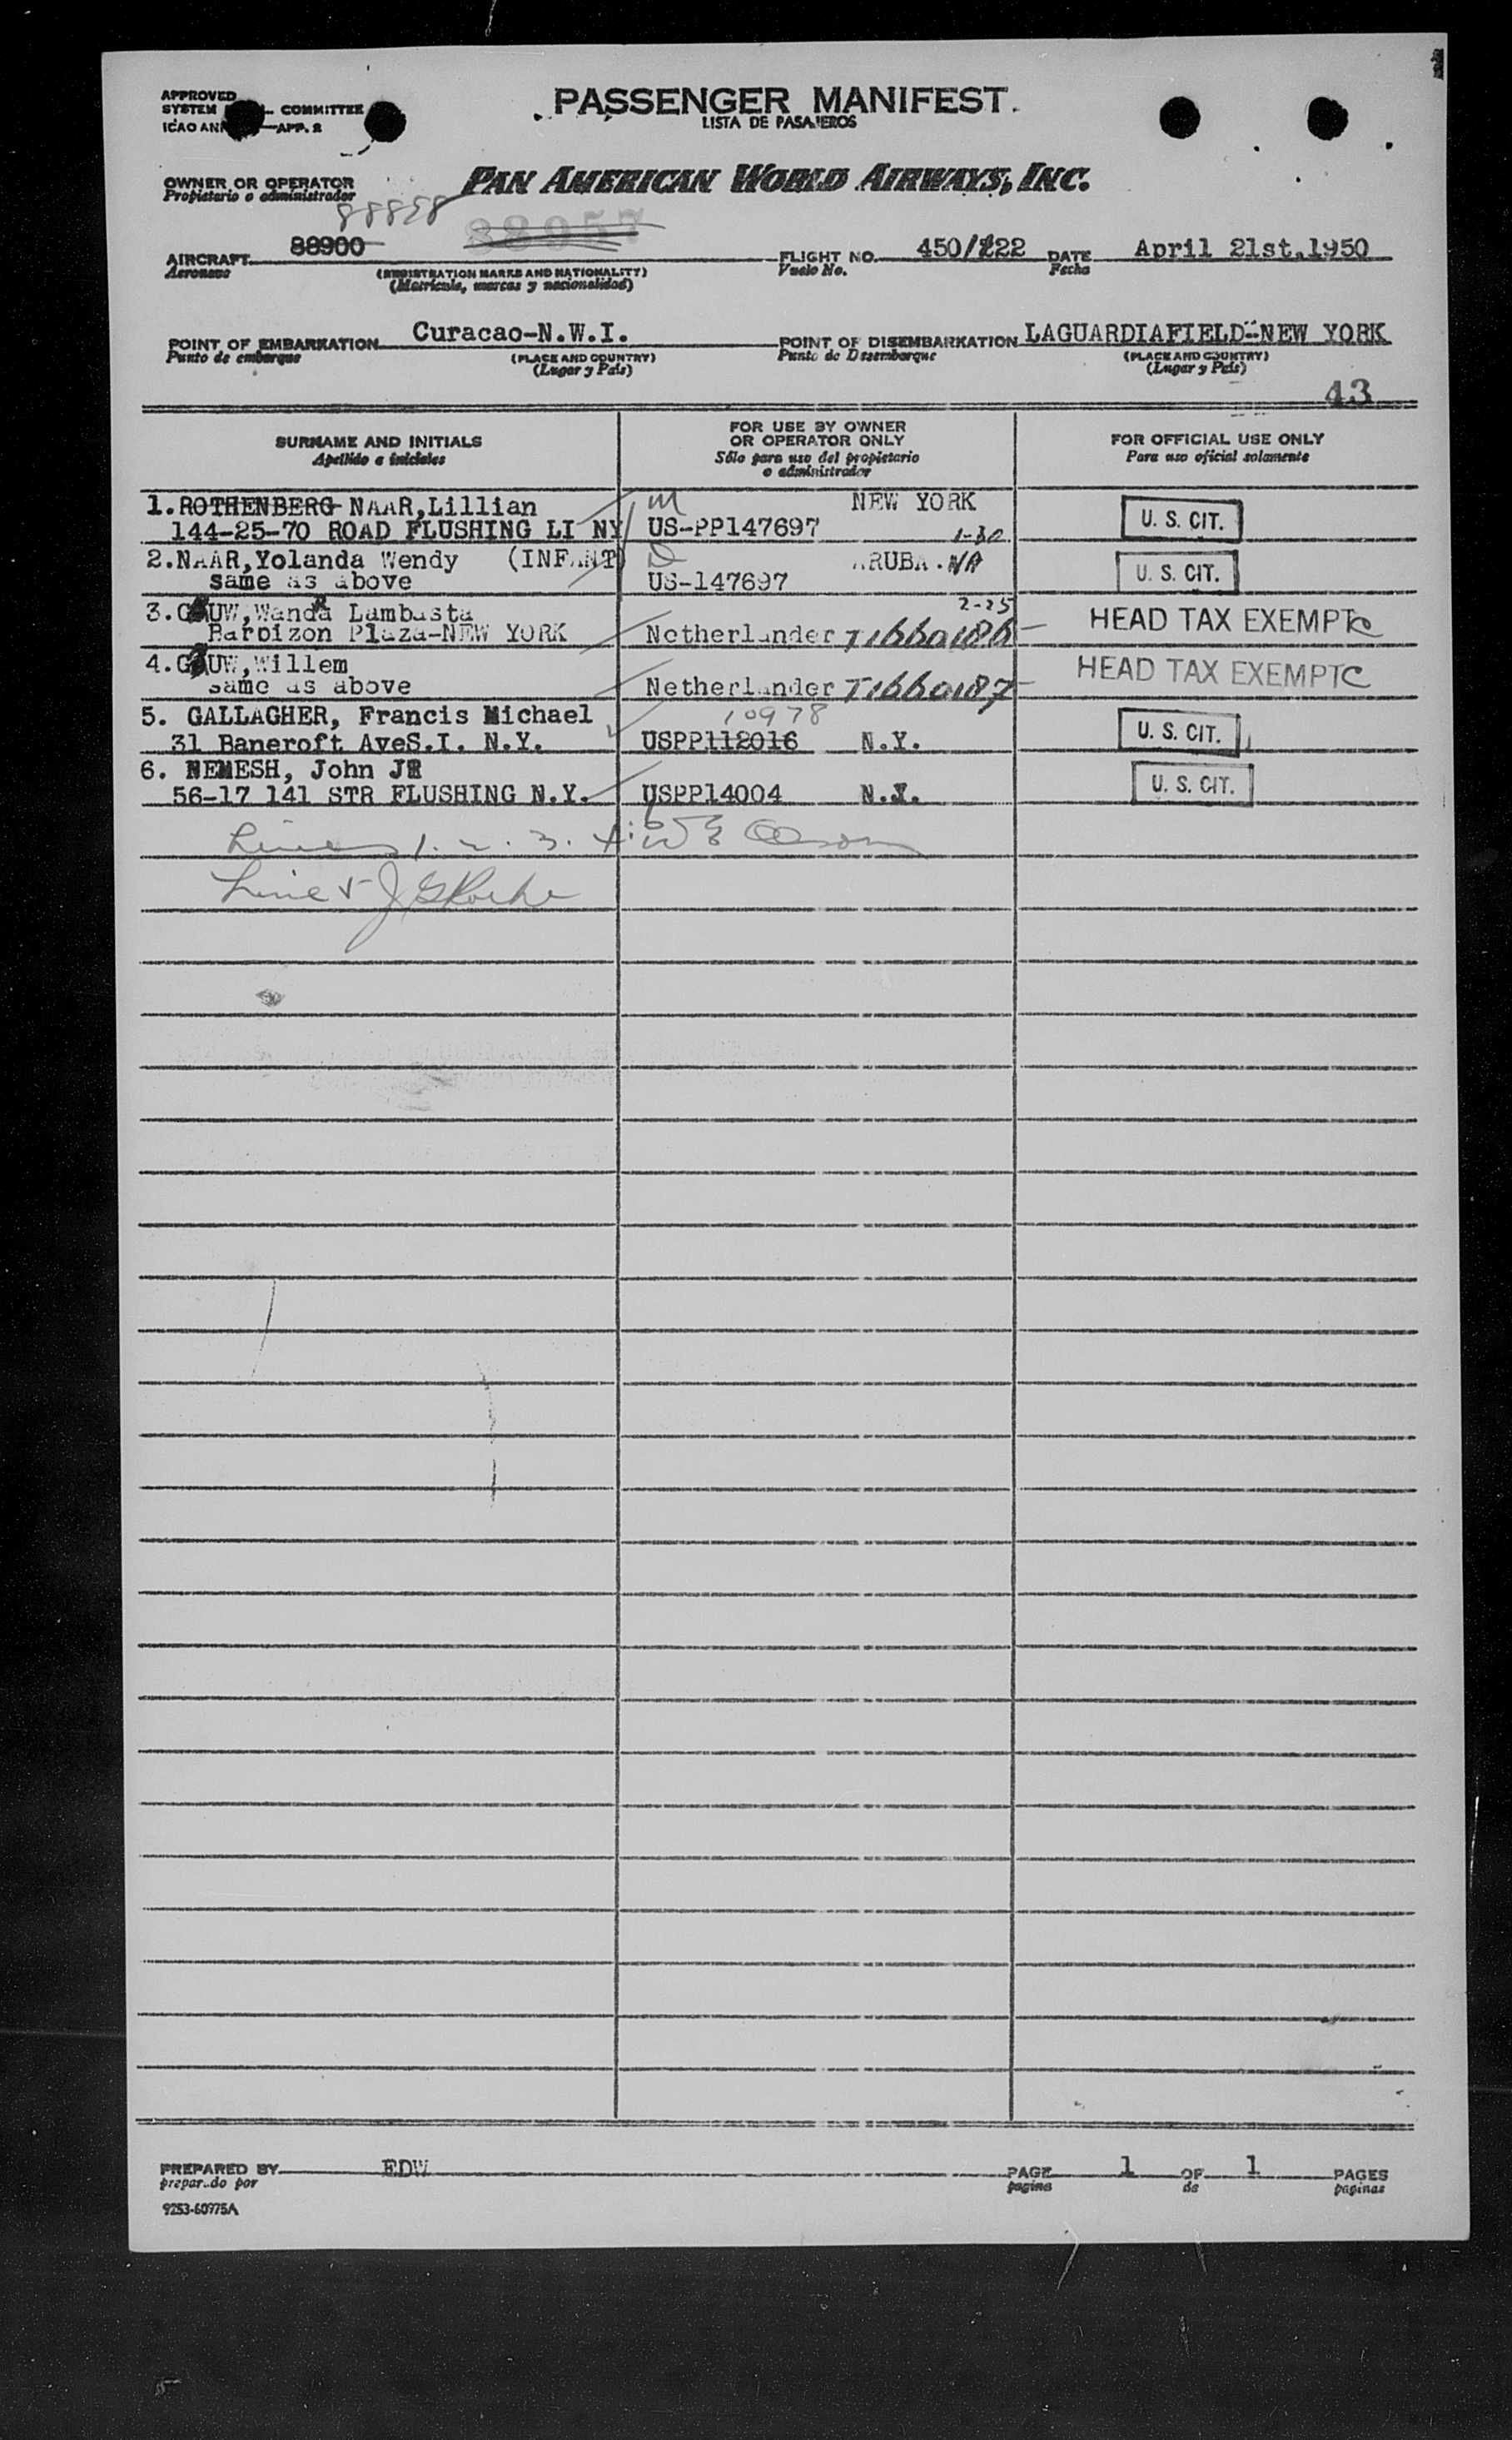 APPROVED
SYSTEM COMMITTEE
ICAO APP. 2
PASSENGER MANIFEST
LISTA DE PASAJEROS
OWNER OR OPERATOR PAN AMERICAN WORLD AIRWAYS, INC.
Propietario o administrador
88858
AIRCRAFT 88900 88957 FLIGHT NO. 450/222 DATE April 21st,1950
Aeronave (REGISTRATION MARKS AND NATIONALITY) Vuelo No. Fecha
(Matricula, marcas y nacionalidad)
POINT OF EMBARKATION Curacao-N.W.I. POINT OF DISEMBARKATION LAGUARDIAFIELD--NEW YORK
Punto de embarque (PLACE AND COUNTRY) Punto de Desembarque (PLACE AND COUNTRY)
(Lugar y País) (Lugar y País)
43
SURNAME AND INITIALS FOR USE BY OWNER OR OPERATOR ONLY FOR OFFICIAL USE ONLY
Apellido e iniciales Sólo para uso del propietario o administrador Para uso oficial solamente
1. ROTHENBERG NAAR,Lillian M NEW YORK U. S. CIT.
144-25-70 ROAD FLUSHING LI NY US-PP147697 1-30
2.NAAR,Yolanda Wendy (INFANT) D ARUBA. NA U. S. CIT.
same as above US-147697
2-25
3. UW,Wanda Lambasta HEAD TAX EXEMPT
Barbizon Plaza-NEW YORK Netherlander T1660186
4. UW,Willem HEAD TAX EXEMPT
same as above Netherlander T1660187
5. GALLAGHER, Francis Michael 10978 U. S. CIT.
31 Bancroft AveS.I. N.Y. USPP112016 N.Y.
6. NEMESH, John JR U. S. CIT.
56-17 141 STR FLUSHING N.Y. USPP14004 N.Y.
Lines 1. 2. 3. 4. 6
Line 5
PREPARED BY EDW PAGE 1 OF 1 PAGES
preparado por pagina de paginas
9253-60975A